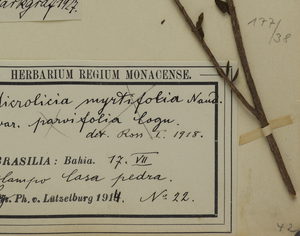 arkgraf 1927.
177/38
HERBARIUM REGIUM MONACENSE.
icrolicia myrtifolia Naud.
var. parvifolia Cogn.
det. Ross I. 1918.
BRASILIA: Bahia. 17. VII
Campo Casa pedra.
Ph. v. Lützelburg 1914 No 22.
42